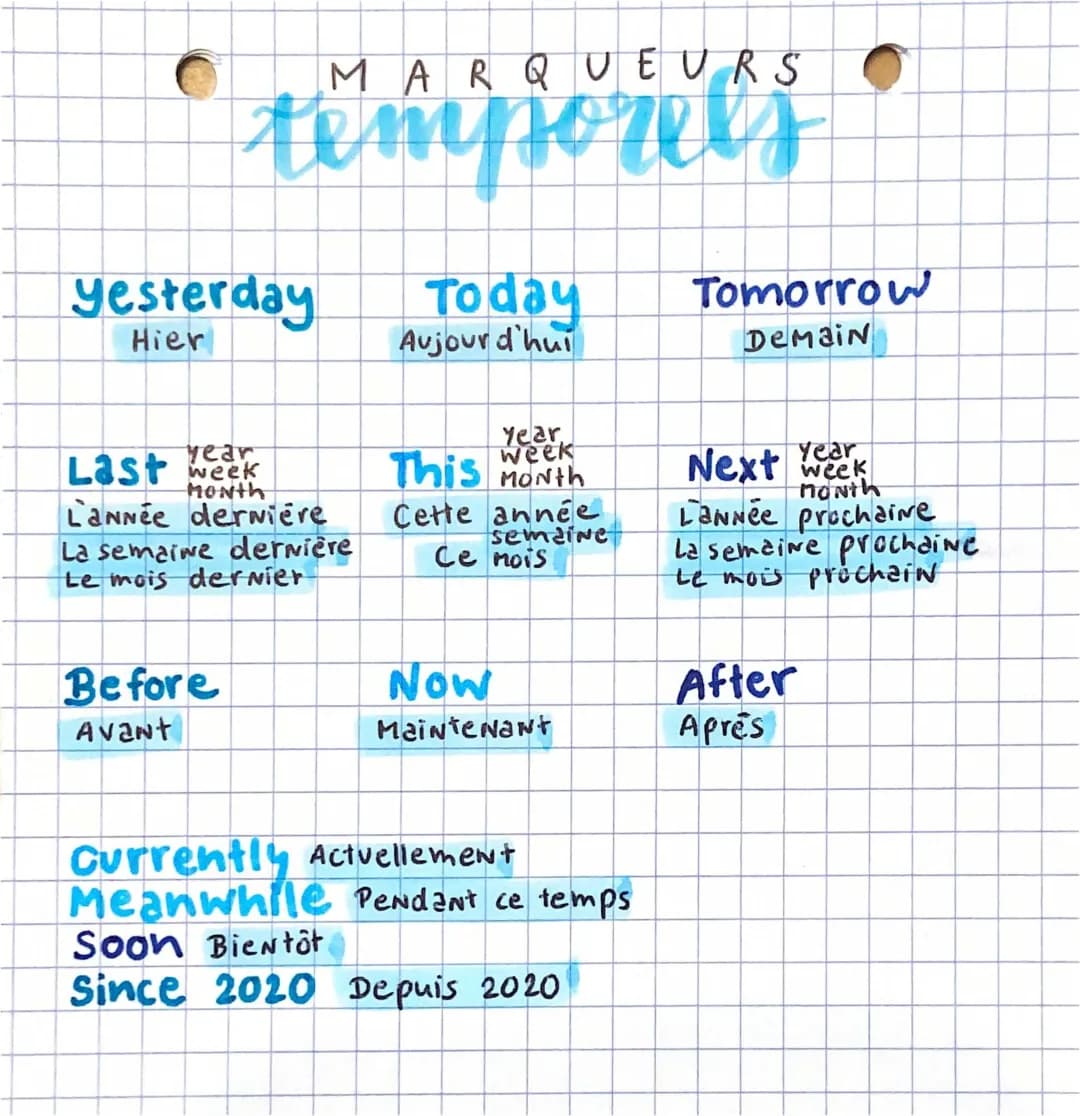 MARQUEURS
temporels
Yesterday Today Tomorrow
Hier Aujourd'hui Demain
Last year week month
This year week month
Next year week month
L'année dernière
La semaine dernière
Le mois dernier
Cette année
semaine
Ce mois
L'année prochaine
La semaine prochaine
Le mois prochain
Before Now After
Avant Maintenant Après
Currently Actuellement
Meanwhile Pendant ce temps
Soon Bientôt
Since 2020 Depuis 2020